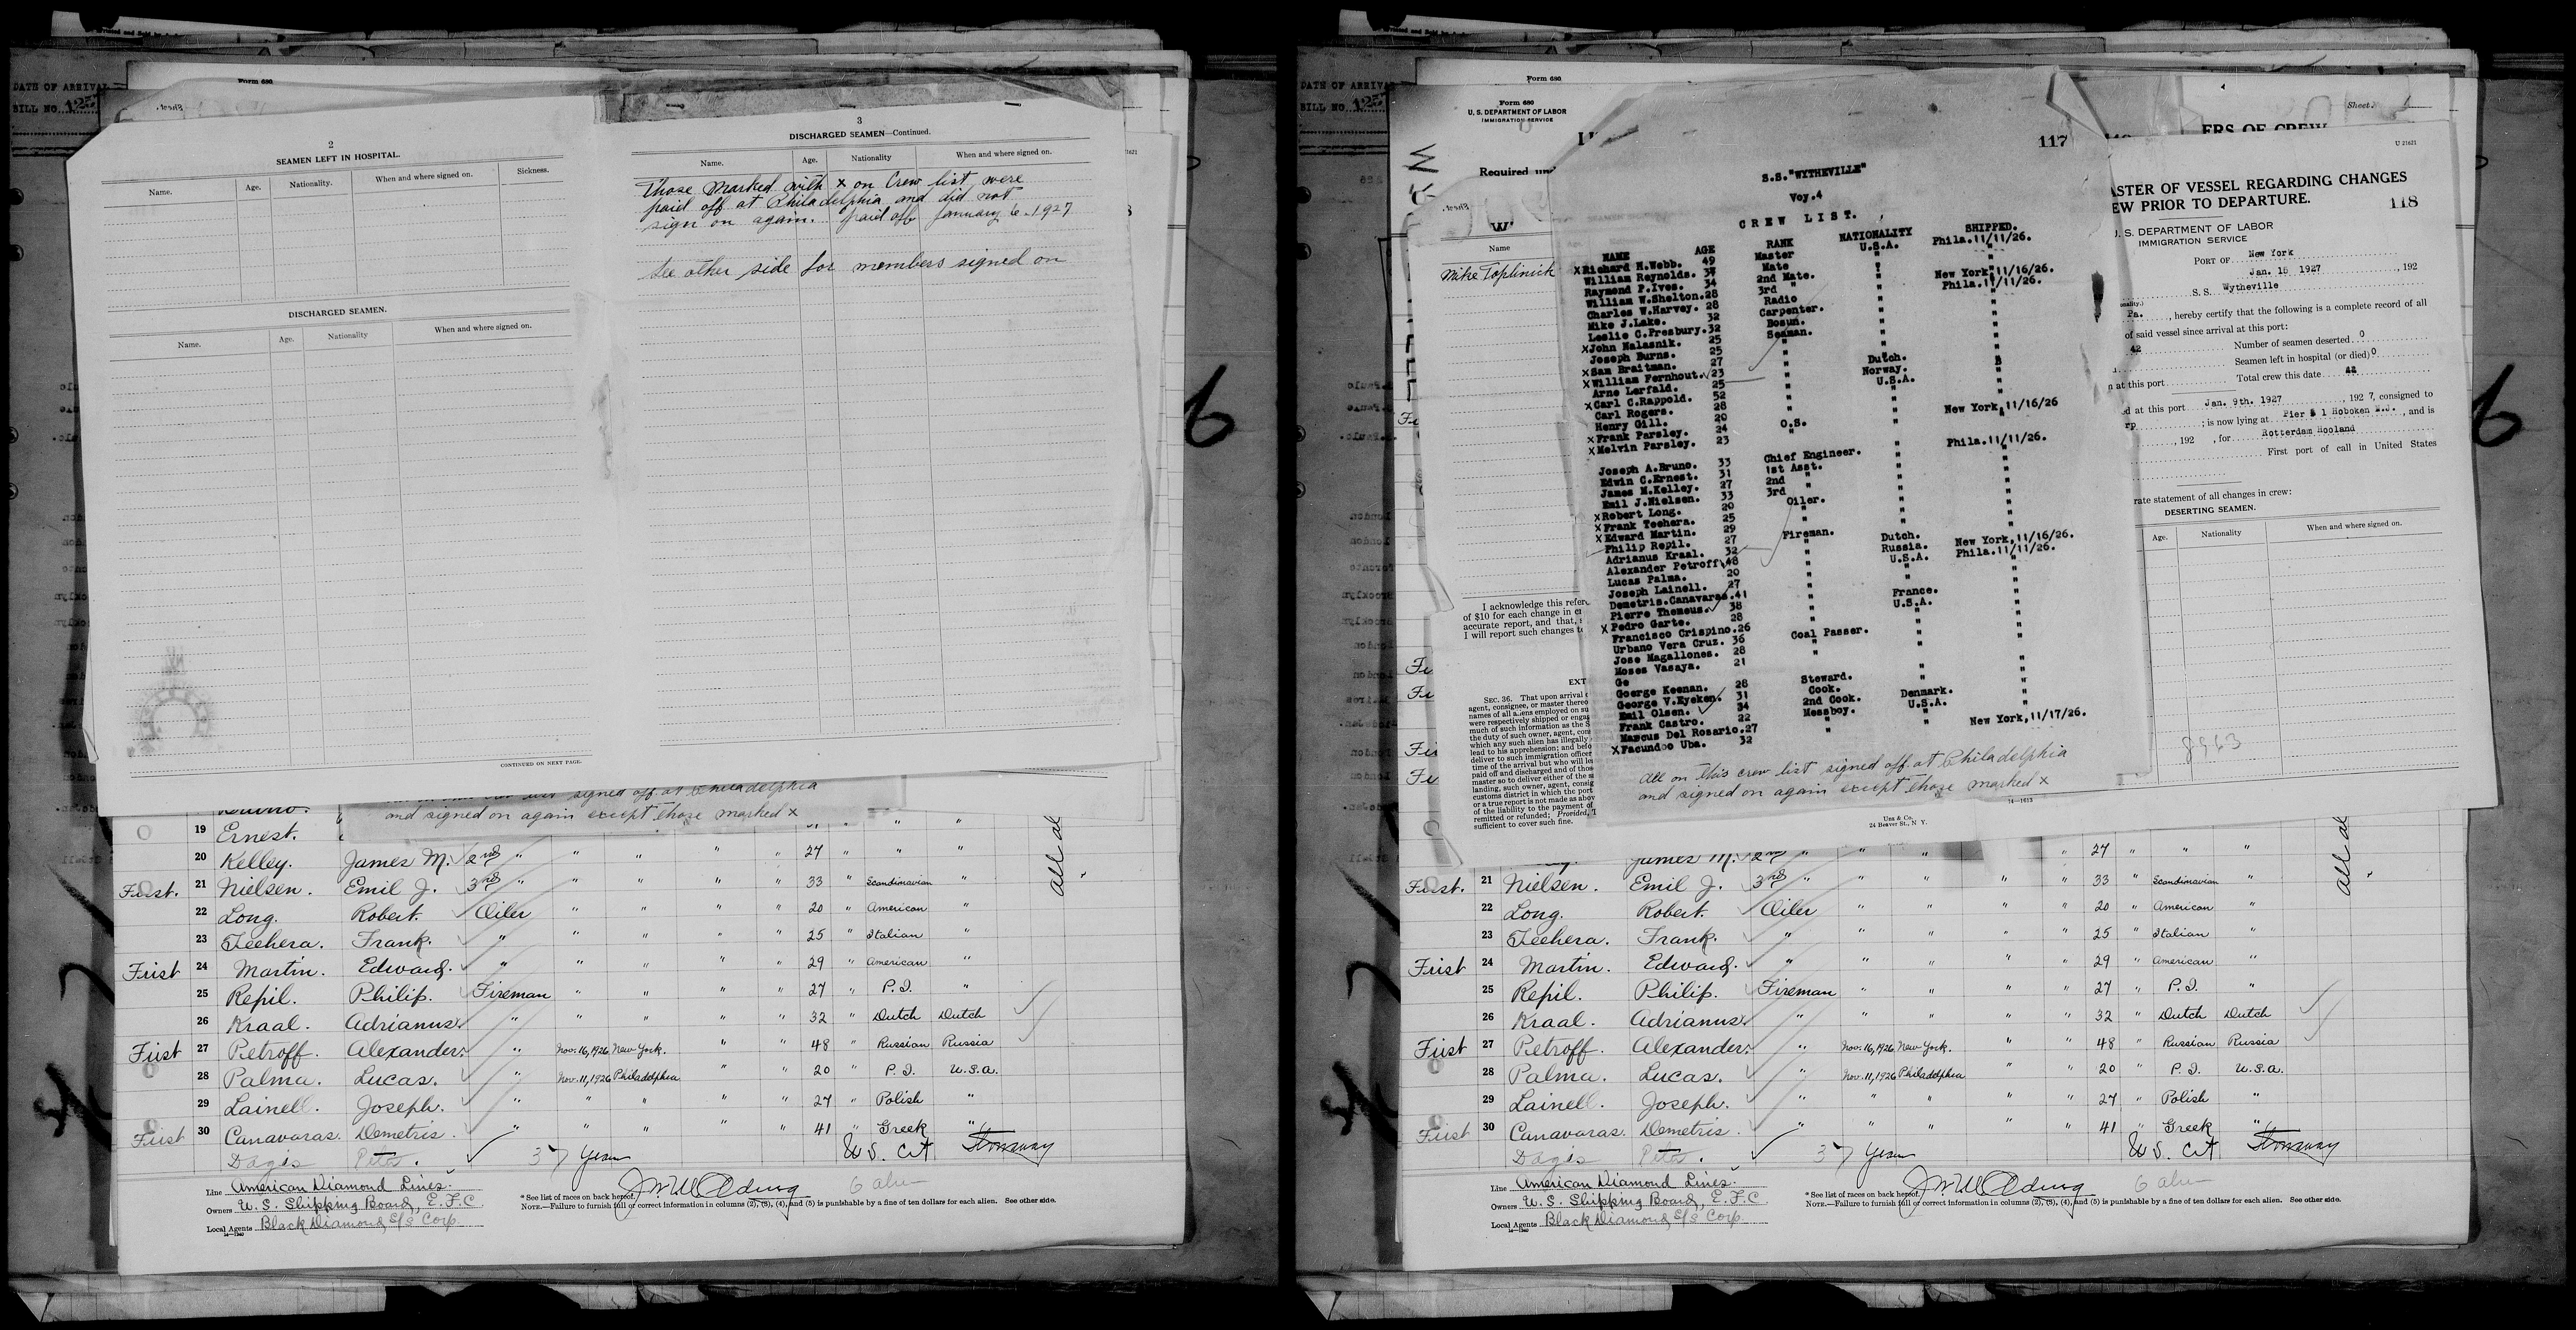 DATE OF ARRIVAL
BILL NO. 125
Form 680
2
SEAMEN LEFT IN HOSPITAL.
Name. Age. Nationality. When and where signed on. Sickness.
DISCHARGED SEAMEN.
Name. Age. Nationality When and where signed on.
CONTINUED ON NEXT PAGE.
3
DISCHARGED SEAMEN—Continued.
Name. Age. Nationality When and where signed on.
Those marked with x on Crew list were
paid off at Philadelphia and did not
sign on again. paid off January 6-1927
See other side for members signed on
signed off at Philadelphia
and signed on again except those marked x
19 Ernest.
20 Kelley. James M. 2nd " " " " " 27 " " "
First. 21 Nielsen. Emil J. 3rd " " " " " 33 " Scandinavian "
22 Long. Robert. Oiler " " " " 20 " American "
23 Techera. Frank. " " " " " 25 " Italian "
First 24 Martin. Edward. " " " " " 29 " American "
25 Repil. Philip. Fireman " " " " 27 " P.I. "
26 Kraal. Adrianus. " " " " " 32 " Dutch Dutch
First 27 Petroff. Alexander. " Nov. 16, 1926 New York. " " 48 " Russian Russia
28 Palma. Lucas. " Nov. 11, 1926 Philadelphia " " 20 " P.I. U.S.a.
29 Lainell. Joseph. " " " " " 27 " Polish "
First 30 Canavaras. Demetris. " " " " " 41 " Greek "
Dagis Petes. 37 Years U.S. Cit Stowaway
all al
6
Line American Diamond Lines.
Owners U. S. Shipping Board, E. F. C
Local Agents Black Diamond S/S Corp.
*See list of races on back hereof.
NOTE.—Failure to furnish full or correct information in columns (2), (3), (4), and (5) is punishable by a fine of ten dollars for each alien. See other side.
DATE OF ARRIVAL
BILL NO. 125
Form 680
Form 680
U. S. DEPARTMENT OF LABOR
IMMIGRATION SERVICE
Required un
Name
Mike Toplinick
I acknowledge this refer
of $10 for each change in cr
accurate report, and that,
I will report such changes t
EXT
SEC. 36. That upon arrival
agent, consignee, or master thereo
names of all aliens employed on su
were respectively shipped or engag
much of such information as the S
the duty of such owner, agent, cons
which any such alien has illegally
lead to his apprehension; and befo
deliver to such immigration officer
time of the arrival but who will le
paid off and discharged and of thos
master so to deliver either of the s
landing, such owner, agent, consig
customs district in which the port
or a true report is not made as abov
of the liability to the payment of
remitted or refunded; Provided, T
sufficient to cover such fine.
117
S.S."WYTHEVILLE"
Voy.4
CREW LIST.
NAME AGE RANK NATIONALITY SHIPPED.
XRichard M.Webb. 49 Master U.S.A. Phila.11/11/26.
William Reynolds. 37 Mate " "
Raymond P.Ives. 34 2nd Mate. " New York,11/16/26.
William W.Shelton.28 3rd " " Phila.11/11/26.
Charles W.Harvey. 28 Radio " "
Mike J.Lake. 32 Carpenter. " "
Leslie C.Presbury.32 Bosun. " "
XJohn Malasnik. 25 Seaman. " "
Joseph Burns. 25 " " "
XSam Braitman. 27 " " "
XWilliam Fernhout. 23 " Dutch. "
Arne Lerfald. 25 " Norway. "
XCarl C.Rappold. 52 " U.S.A. "
Carl Rogers. 28 " " "
Henry Gill. 20 " " New York,11/16/26
XFrank Parsley. 24 O.S. " "
XMelvin Parsley. 23 " " "
Joseph A.Bruno. 33 Chief Engineer. " Phila.11/11/26.
Edwin C.Ernest. 31 1st Asst. " "
James M.Kelley. 27 2nd " " "
Emil J.Nielsen. 33 3rd " " "
XRobert Long. 20 Oiler. " "
XFrank Techera. 25 " " "
XEdward Martin. 29 " " "
Philip Repil. 27 Fireman. " "
Adrianus Kraal. 32 " Dutch. "
Alexander Petroff 48 " Russia. New York,11/16/26.
Lucas Palma. 20 " U.S.A. Phila.11/11/26.
Joseph Lainell. 27 " " "
Demetris.Canavaras.41 " " "
Pierre Themeus. 38 " France. "
XPedro Garte. 28 " U.S.A. "
Francisco Crispino.26 " " "
Urbano Vera Cruz. 36 Coal Passer. " "
Jose Magallones. 28 " " "
Moses Vasaya. 21 " " "
Ge
Goerge Keenan. 28 Steward. " "
George V.Eyeken. 31 Cook. " "
Emil Olsen. 34 2nd Cook. Denmark. "
Frank Castro. 22 Messboy. U.S.A. "
Marcus Del Rosario.27 " " "
XFacundo Uba. 32 " " New York,11/17/26.
All on this crew list signed off at Philadelphia
and signed on again except those marked x
Uns & Co.
24 Beaver St., N. Y.
Sheet. 1
ERS OF CREW
U 21621
ASTER OF VESSEL REGARDING CHANGES
EW PRIOR TO DEPARTURE.
118
U. S. DEPARTMENT OF LABOR
IMMIGRATION SERVICE
PORT OF New York
Jan. 15 1927, 192
S. S. Wytheville
Pa., hereby certify that the following is a complete record of all
of said vessel since arrival at this port:
42 Number of seamen deserted 0
Seamen left in hospital (or died) 0
n at this port Total crew this date 42
ed at this port Jan. 9th. 1927, 192 7, consigned to
rp ; is now lying at Pier # 1 Hoboken N.J., and is
, 192 , for Rotterdam Hooland
First port of call in United States
rate statement of all changes in crew:
DESERTING SEAMEN.
Age. Nationality When and where signed on.
8963
14—1613
James M. 2nd " " " " " 27 " " "
First. 21 Nielsen. Emil J. 3rd " " " " " 33 " Scandinavian "
22 Long. Robert. Oiler " " " " 20 " American "
23 Techera. Frank. " " " " " 25 " Italian "
First 24 Martin. Edward. " " " " " 29 " American "
25 Repil. Philip. Fireman " " " " 27 " P.I. "
26 Kraal. Adrianus. " " " " " 32 " Dutch Dutch
First 27 Petroff. Alexander. " Nov. 16, 1926 New York. " " 48 " Russian Russia
28 Palma. Lucas. " Nov. 11, 1926 Philadelphia " " 20 " P.I. U.S.a.
29 Lainell. Joseph. " " " " " 27 " Polish "
First 30 Canavaras. Demetris. " " " " " 41 " Greek "
Dagis Petes. 37 Years U.S. Cit Stowaway
all al
6
Line American Diamond Lines.
Owners U. S. Shipping Board, E. F. C
Local Agents Black Diamond S/S Corp.
*See list of races on back hereof.
NOTE.—Failure to furnish full or correct information in columns (2), (3), (4), and (5) is punishable by a fine of ten dollars for each alien. See other side.